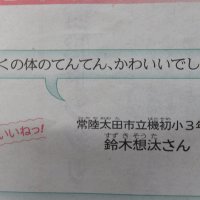 くの体のてんてん、かわいいでし
常陸太田市立機初小3年
すずきそうた
鈴木想汰さん
いいねっ!